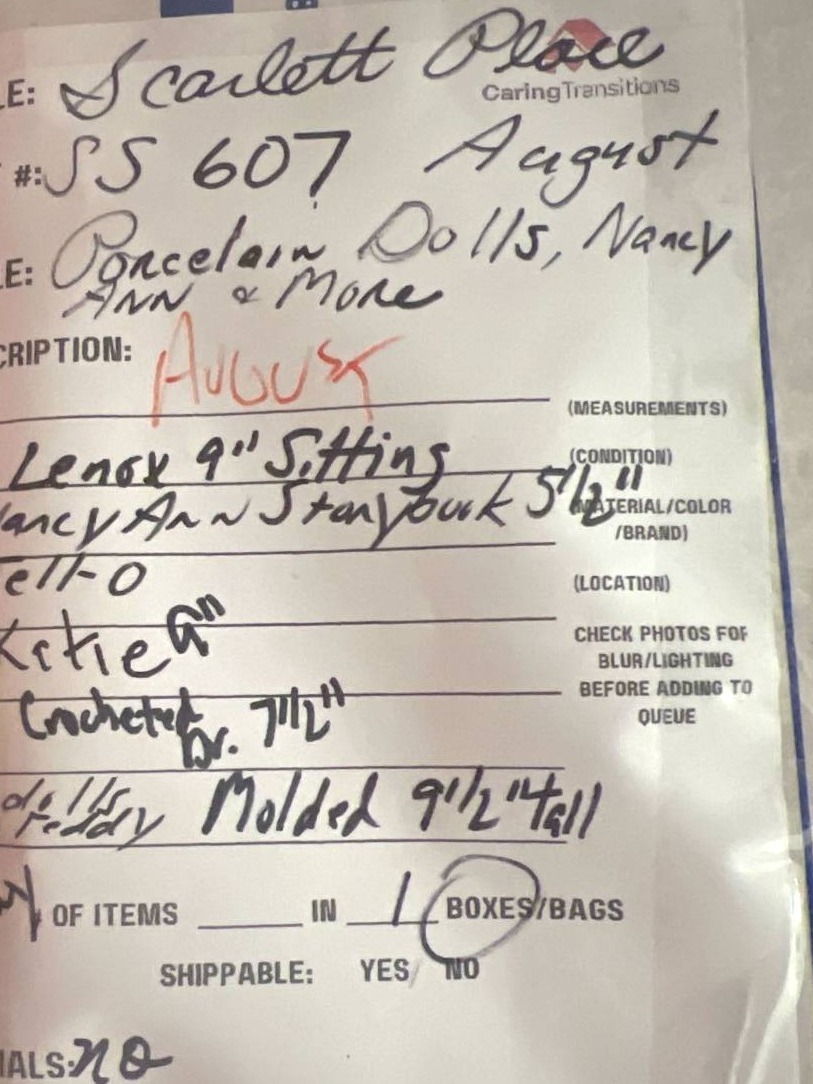 LE: Scarlett Place
CaringTransitions
#: SS 607 August
LE: Porcelain Dolls, Nancy
Ann & More
CRIPTION: August
(MEASUREMENTS)
Lenox 9" Sitting
(CONDITION)
Nancy Ann Storybook 5 1/2"
MATERIAL/COLOR
/BRAND)
ell-O
(LOCATION)
Katie 9"
CHECK PHOTOS FOR
BLUR/LIGHTING
BEFORE ADDING TO
QUEUE
Crocheted Dr. 7 1/2"
dolls
Teddy Molded 9 1/2" tall
OF ITEMS ____ IN 1 BOXES/BAGS
SHIPPABLE: YES/ NO
IALS: